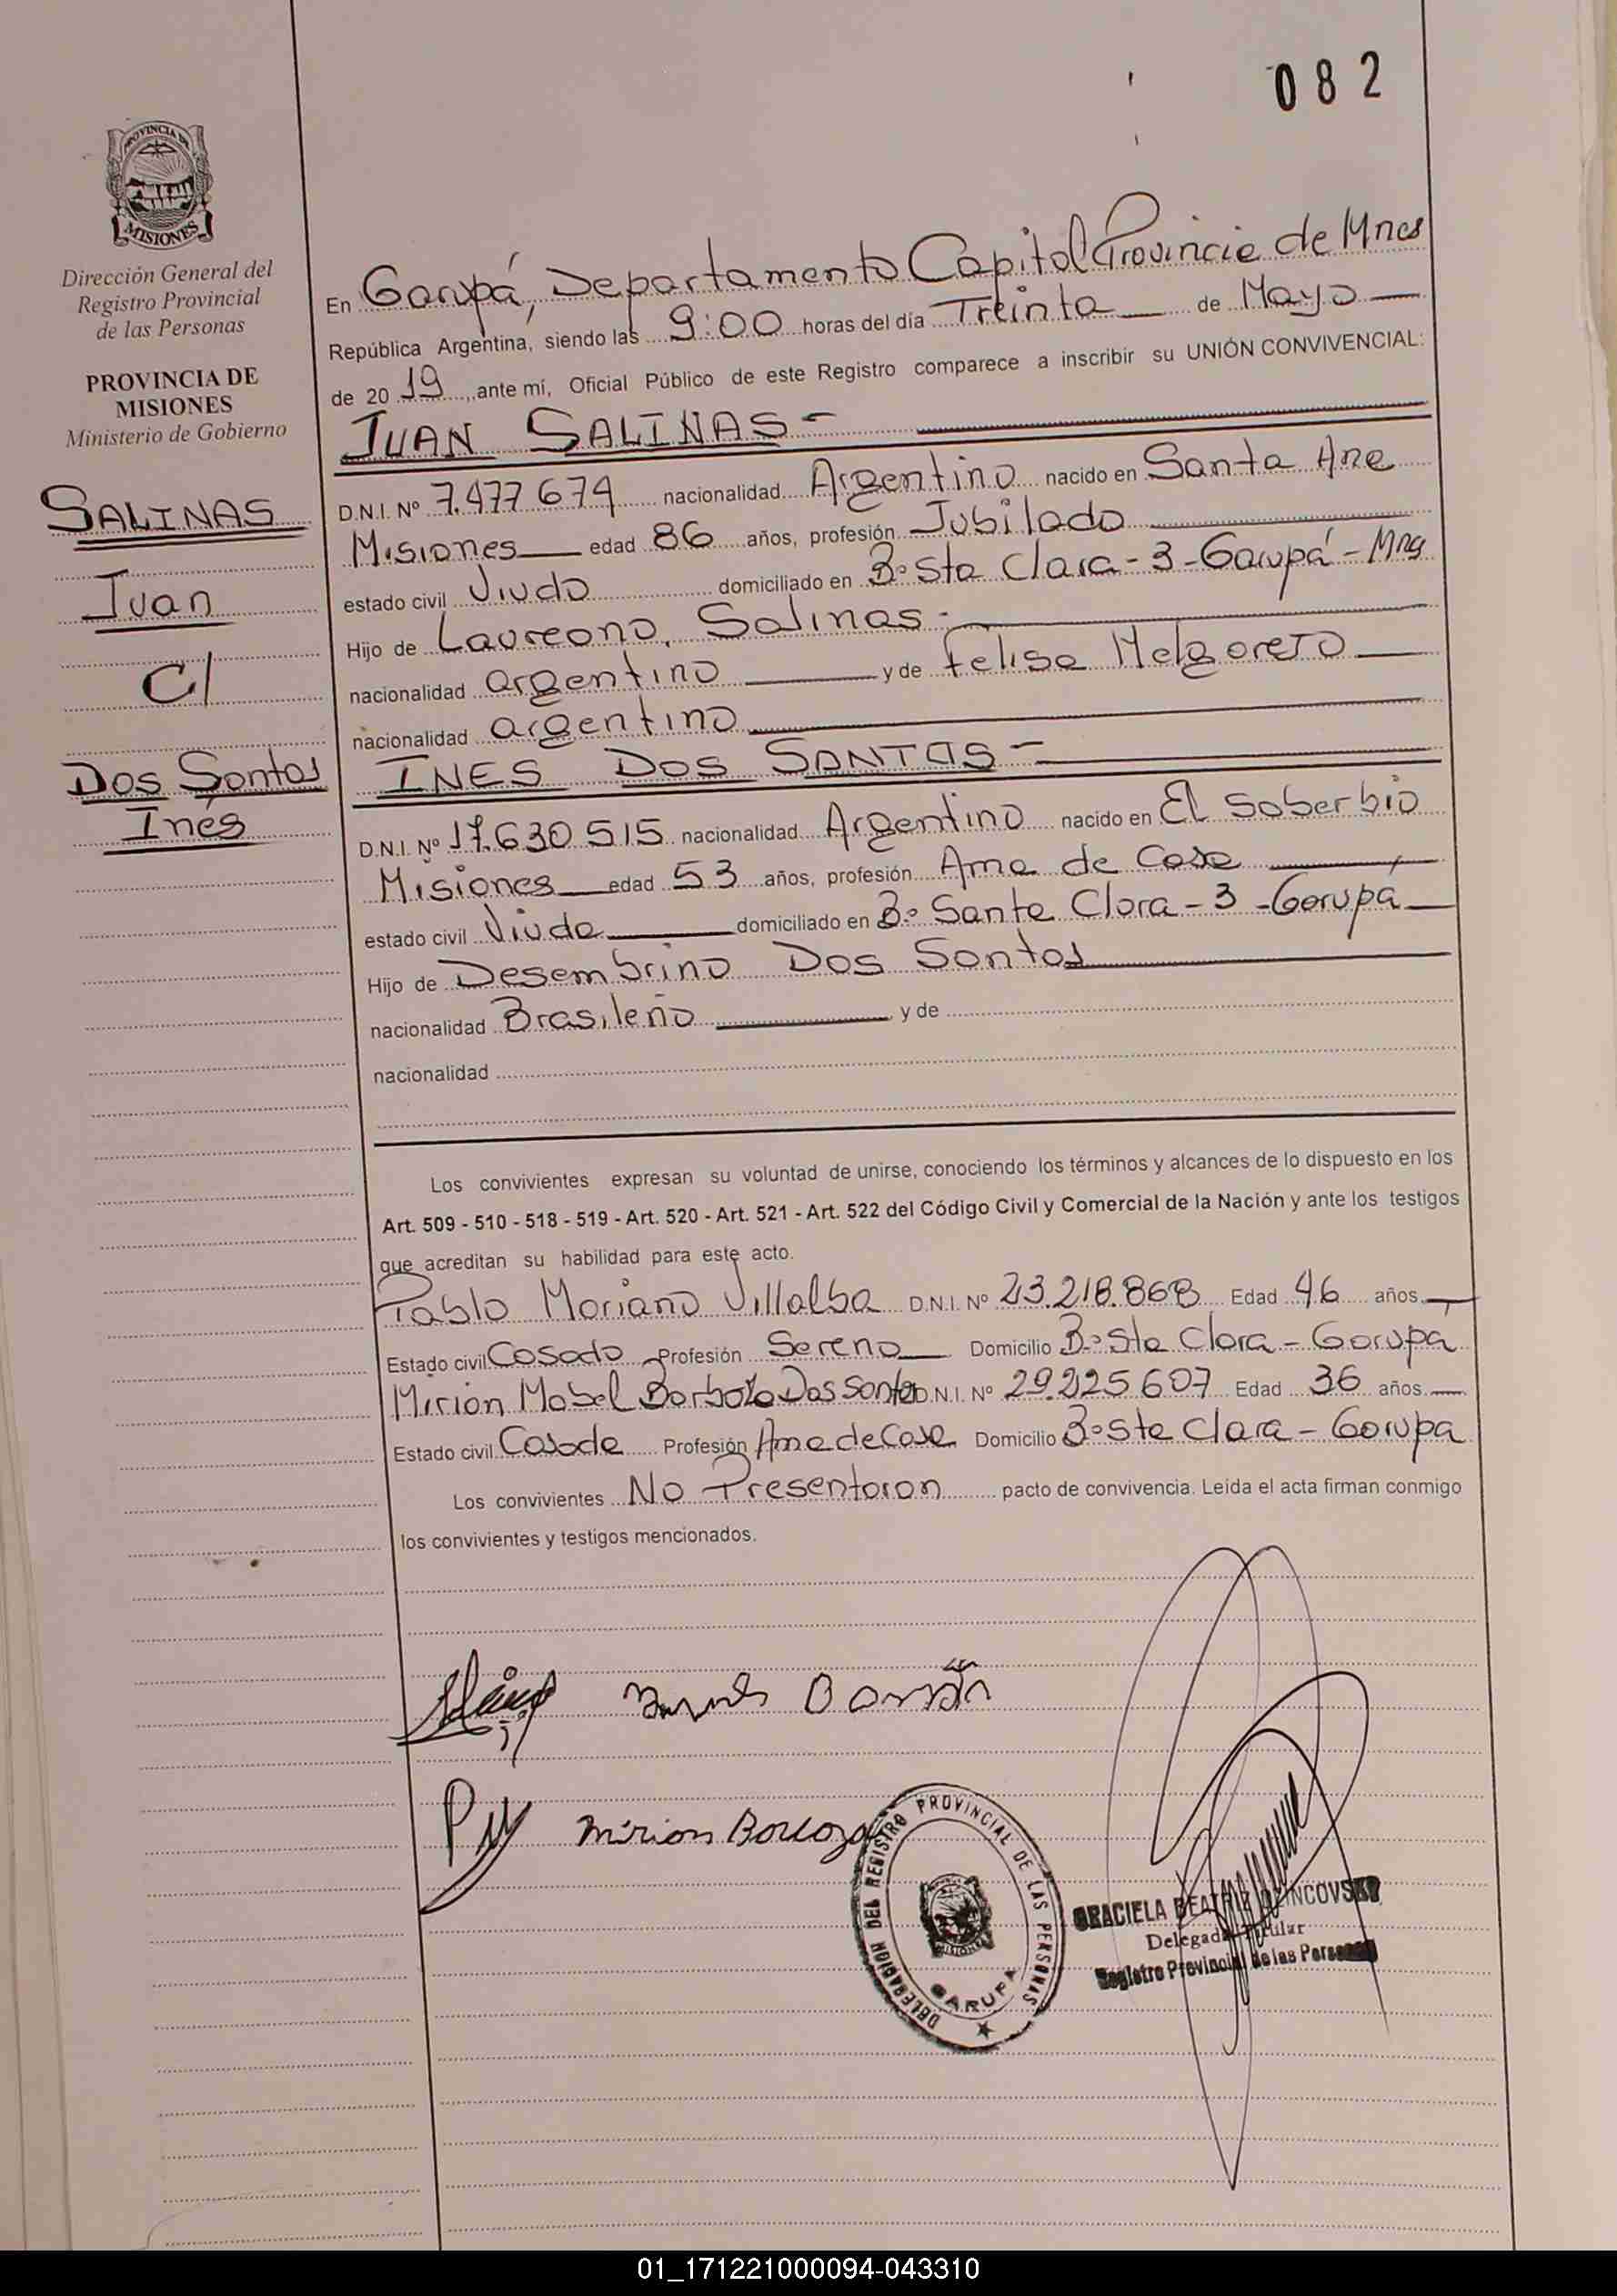 082
PROVINCIA DE
MISIONES
Dirección General del
Registro Provincial
de las Personas
PROVINCIA DE
MISIONES
Ministerio de Gobierno
SALINAS
Juan
C/
Dos Santos
Inés
En Garupá, Departamento Capital Provincia de Mnes
República Argentina, siendo las 9:00 horas del día Treinta de Mayo
de 2019, ante mí, Oficial Público de este Registro comparece a inscribir su UNIÓN CONVIVENCIAL:
JUAN SALINAS
D.N.I. Nº 7.477674 nacionalidad Argentino nacido en Santa Ana
Misiones edad 86 años, profesión Jubilado
estado civil Viudo domiciliado en Bº Sta Clara - 3 - Garupá - Mns
Hijo de Laureano, Salinas
nacionalidad argentino y de Felisa Melgarejo
nacionalidad argentino
INES DOS SANTOS
D.N.I. Nº 17.630515 nacionalidad Argentino nacido en El Soberbio
Misiones edad 53 años, profesión Ama de Casa
estado civil Viuda domiciliado en Bº Santa Clara - 3 - Garupá
Hijo de Desembrino Dos Santos
nacionalidad Brasileño y de
nacionalidad
Los convivientes expresan su voluntad de unirse, conociendo los términos y alcances de lo dispuesto en los
Art. 509 - 510 - 518 - 519 - Art. 520 - Art. 521 - Art. 522 del Código Civil y Comercial de la Nación y ante los testigos
que acreditan su habilidad para este acto.
Pablo Mariano Villalba D.N.I. Nº 23.218.868 Edad 46 años
Estado civil Casado Profesión Sereno Domicilio Bº Sta Clara - Garupá
Mirian Mabel Dos Santos D.N.I. Nº 29.225607 Edad 36 años
Estado civil Casada Profesión Ama de Casa Domicilio Bº Sta Clara - Garupa
Los convivientes No Presentaron pacto de convivencia. Leída el acta firman conmigo
los convivientes y testigos mencionados.
Mirian
DELEGACION DEL REGISTRO PROVINCIAL DE LAS PERSONAS
MISIONES
GARUPA
GRACIELA BEATRIZ
Delegada Titular
Registro Provincial de las Personas
01_171221000094-043310